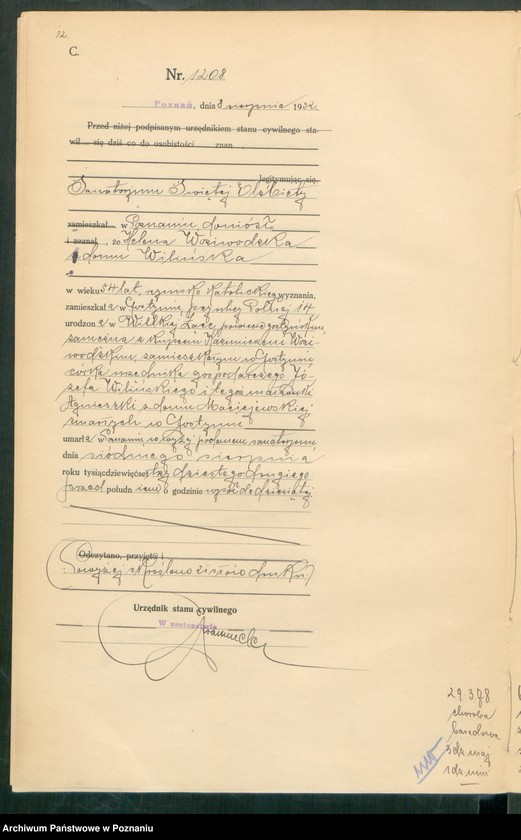 12.
C.
Nr. 1208
Poznań, dnia 8 sierpnia 1932.
Przed niżej podpisanym urzędnikiem stanu cywilnego sta-
wił się dziś co do osobistości znan
legitymując się
Sanatorjum Świętej Elżbiety
zamieszkał w Poznaniu doniósł
i zeznał, że Helena Wojewodzka
z domu Wilińska
w wieku 54 lat, rzymsko katolickiego wyznania,
zamieszkała w Gostyniu, przy ulicy Polnej 14
urodzona w Wielkiej Łące, powiecie gostyńskim,
zamężna z kupcem Kazimierzem Woje-
wodzkim, zamieszkałym w Gostyniu
córka urzędnika gospodarczego Jó-
zefa Wilińskiego i tegoż małżonki
Agnieszki z domu Maciejewskiej
zmarłych w Gostyniu
umarła w Poznaniu, w wyżej podanem sanatorjum,
dnia siódmego sierpnia
roku tysiąc dziewięćset trzydziestego drugiego
przed południem o godzinie wpół do dziesiątej
Odczytano, przyjęto i
Powyżej skreślono
Urzędnik stanu cywilnego
W zastępstwie
29.3.78
choroba
basedowa
3 dz. maj
1 dz.
Archiwum Państwowe w Poznaniu